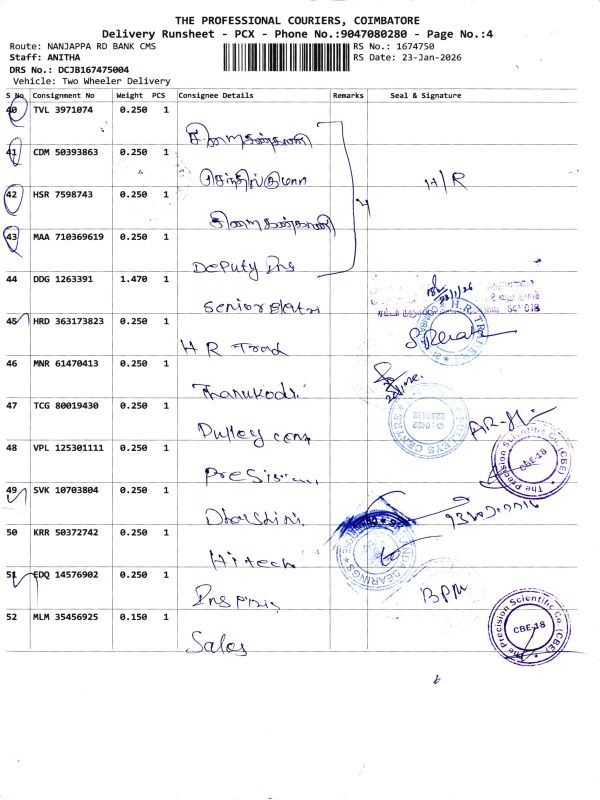 THE PROFESSIONAL COURIERS, COIMBATORE
Delivery Runsheet - PCX - Phone No.:9047080280 - Page No.:4
Route: NANJAPPA RD BANK CMS
RS No.: 1674750
Staff: ANITHA
RS Date: 23-Jan-2026
DRS No.: DCJB167475004
Vehicle: Two Wheeler Delivery
S No Consignment No Weight PCS Consignee Details Remarks Seal & Signature
40 TVL 3971074 0.250 1
41 CDM 50393863 0.250 1
செந்தில்குமார்
42 HSR 7598743 0.250 1
H/R
43 MAA 710369619 0.250 1
Deputy Ins
44 DDG 1263391 1.470 1
Senior
45 HRD 363173823 0.250 1
H R Trad
46 MNR 61470413 0.250 1
Thanukodi
47 TCG 80019430 0.250 1
Pulley cent
48 VPL 125301111 0.250 1
The Precision Scientific Co (CBE)
CBE-18
49 SVK 10703804 0.250 1
Dharshini
50 KRR 50372742 0.250 1
Hitech
BEARINGS
51 EDQ 14576902 0.250 1
BPM
52 MLM 35456925 0.150 1
Sales
The Precision Scientific Co (CBE)
CBE-18